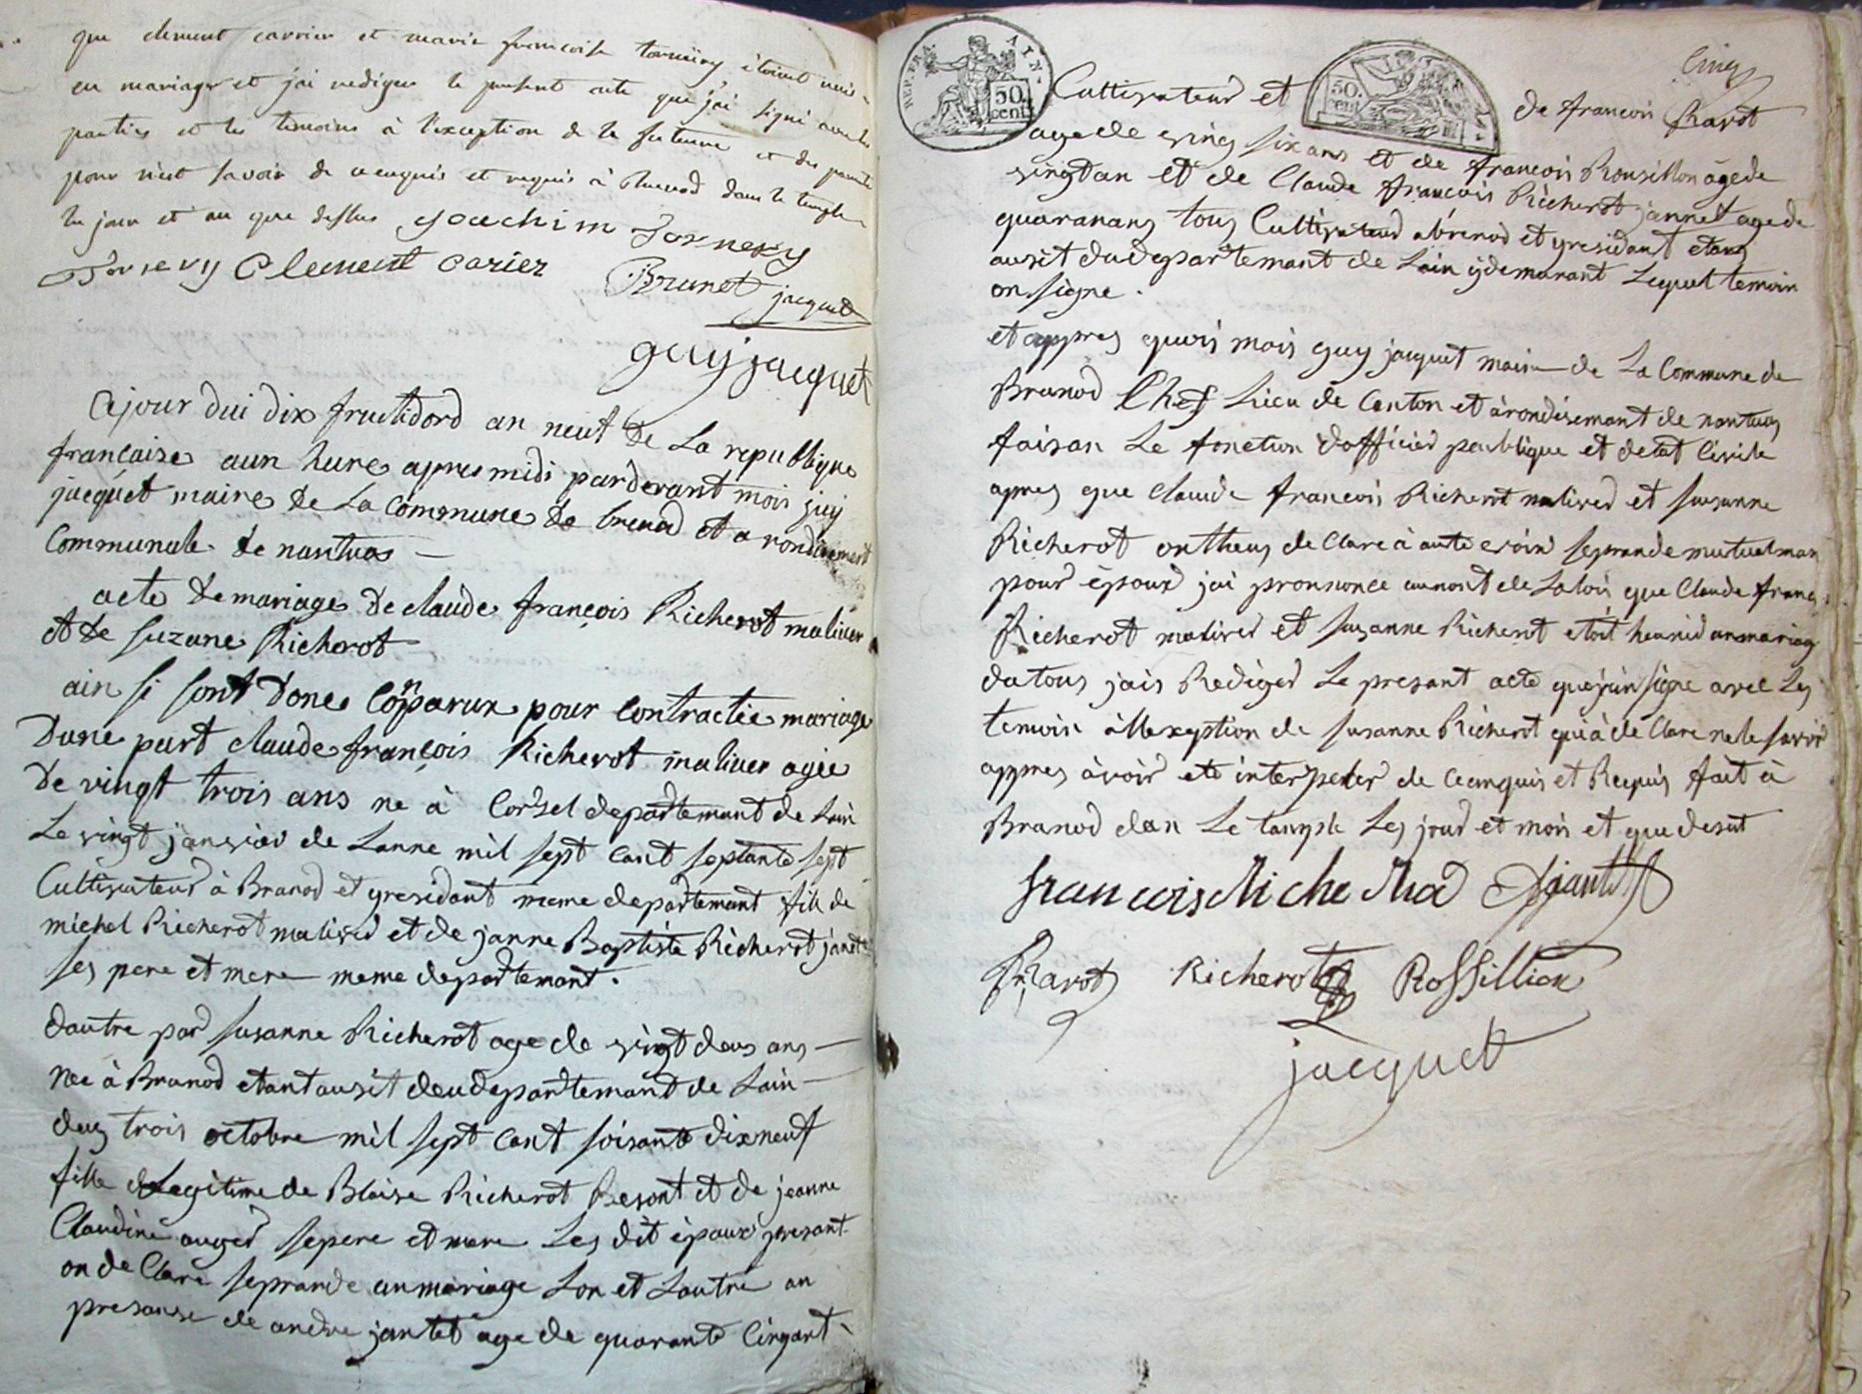 que clement carrier et marie francoise tornery étoient unis
en mariage et j'ai redigee le present acte que j'ai signé avec les
parties et les temoins à l'exception de la future et des parents
pour n'est savoir de ce enquis et requis à Brenod dans le temple
les jour et an que dessus joachim Tornery
Tornery Clement carier Brunet jacquet
guy jacquet
Cejour dui dix fructidord an neuf de La republique
française aun hure apres midi pardevant mois juy
jacquet maire de La Commune de brenod et a rondisement
Communale de nantuas
acte de mariage de claude françois Richerot maliver
et de suzane Richerot
ain si sont donc Conparux pour contractée mariage
Dune part claude françois Richerot maliver agée
de vingt trois ans ne à Corsel departemant de Lain
Le vingt janvier de Lanne mil sept cant septante sept
Cultivateur à Branod et y residant meme departemant fils de
michel Richerot malived et de janne Baptiste Richerot janet
ses pere et mere meme departemant.
dautre par susanne Richerot age de vingt deus ans
née à Branod etant ausit deu departemant de Lain
deus trois octobre mil sept cant soisante dix neuf
fille Legitime de Blaise Richerot Besont et de jeanne
Claudine auger sepere et mere Les dit épaux presant
on de Clare seprande an mariage Lon et Lautre an
presanse de andre jantet age de quarante Cinqant
REP. FRA. 50. cent.
50. cent.
Cinq
Cultivateur et de francois Ravot
age de ving six ans et de francois Rousillon âge de
vingt an et de Claude francois Richerot jannet age de
quaranans tous Cultivateur abrenod et y residant etans
ausit du departemant de Lain y demurant Lequel temoin
on signe.
et appres quoi mois guy jacquet maire de La Commune de
Branod Chef Lieu de Canton et àrondisemant de nantuas
faisan Le fonction dofficier peublique et detat Civile
apres que claude francois Richerot malived et susanne
Richerot on theus de Clare à aute voix seprande mutuelman
pour époux jai prononce aunont de La loi que Claude franç
Richerot malived et susanne Richerot etoit heunid anmariag
datous jais Rediger Le presant acte que jai signe avec Les
temoin àllexeption de susanne Richerot qui à de Clare ne le savoir
appres àvoir ete interpeler de ceanquis et Requis fait à
Branod dan Le tanple Les jour et mois et que desut
francois Miche Mad Jantet
Ravot Richerot Rossillion
jacquet